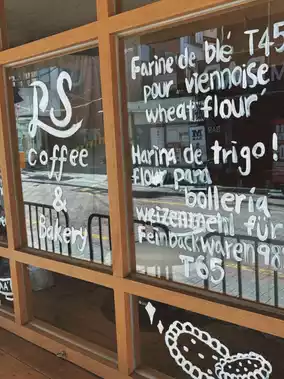 RS
coffee
&
Bakery
Farine de blé T45
pour viennoise
wheat flour
Harina de trigo!
flour para
bollería
weizenmehl für
Feinbackwaren
T65